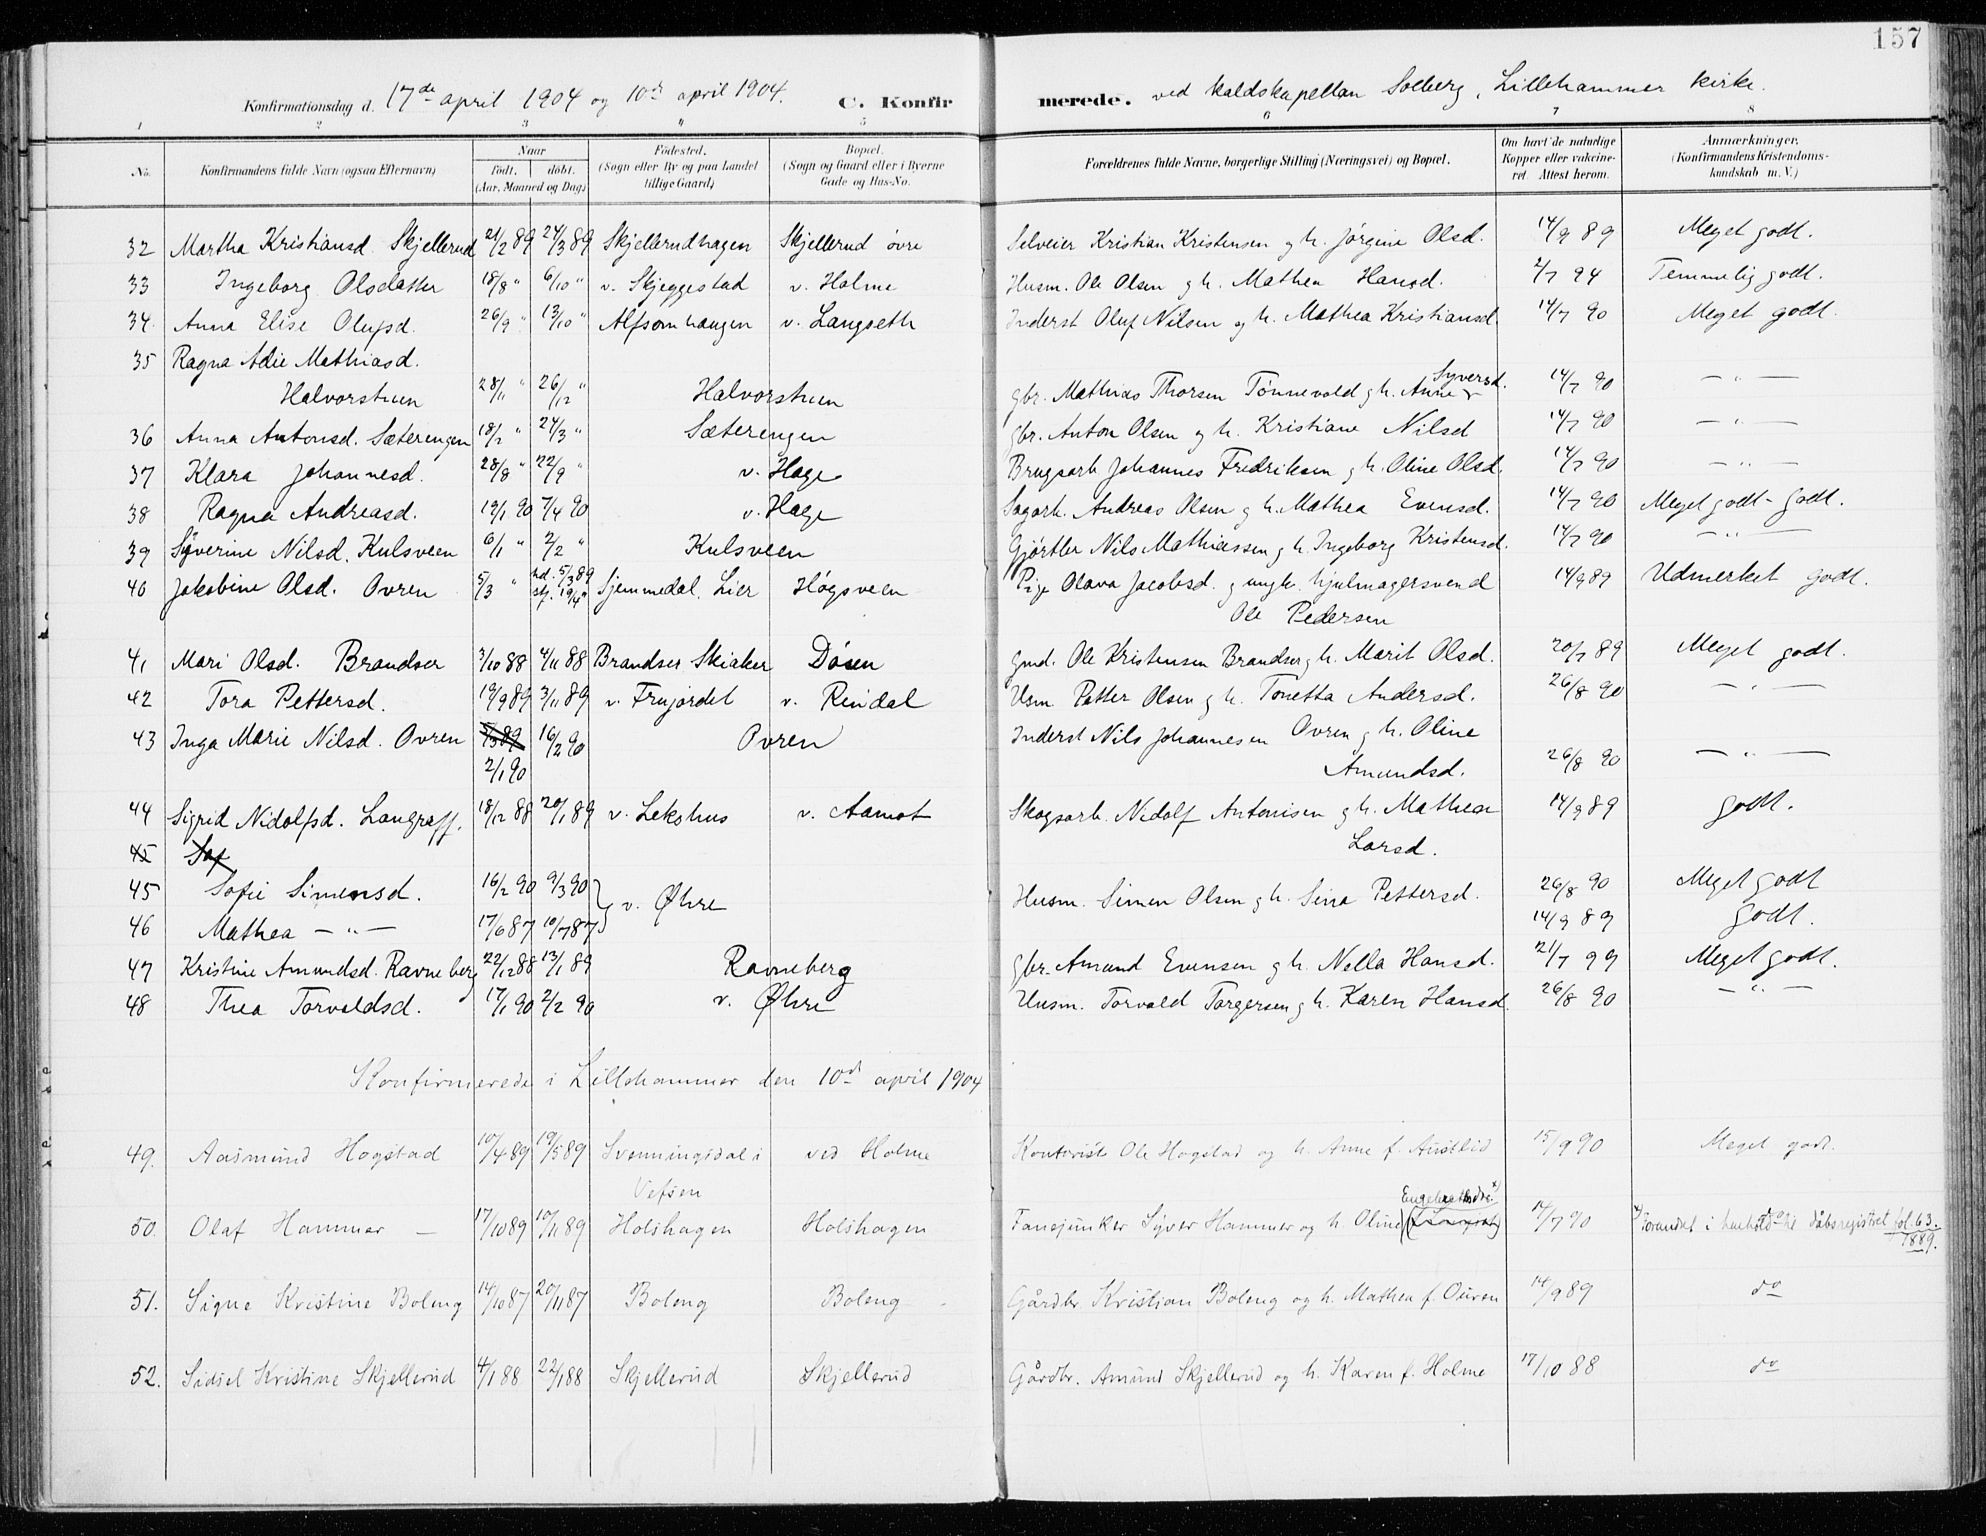 157
Konfirmationsdag d. 17de april 1904 og 10de april 1904. C. Konfirmerede. ved kaldskapellan Solberg, Lillehammer kirke.
1 2 3 4 5 6 7 8
No. Konfirmandens fulde Navn (ogsaa Efternavn) Naar født. døbt. (Aar, Maaned og Dag) Fødested. (Sogn eller By og paa Landet tillige Gaard) Bopæl. (Sogn og Gaard eller i Byerne Gade og Hus-No. Forældrenes fulde Navne, borgerlige Stilling (Næringsvei) og Bopæl. Om havt de naturlige Kopper eller vakcineret. Attest herom. Anmærkninger. (Konfirmandens Kristendomskundskab m. V.)
32 Martha Kristiansd. Skjellerud 21/2 89 24/3 89 Skjellerudhagen Skjellerud øvre Selveier Kristian Kristensen og h. Jørgine Olsd. 14/9 89 Meget godt.
33 Ingeborg Olsdatter 18/8 " 6/10 " v. Skjeggestad v. Holme Husm. Ole Olsen og h. Mathea Hansd. 2/7 94 Temmelig godt.
34. Anna Elise Olufsd. 26/9 " 13/10 " Alfsomhaugen v. Langseth Inderst Oluf Nilsen og h. Mathea Kristiansd. 14/7 90 Meget godt.
35 Ragna Adie Mathiasd.
Halvorstuen 28/11 " 26/12 " Halvorstuen gbr. Mathias Thorsen Tønnevold og h. Anne Syversd. 14/7 90 — " —
36 Anna Antonsd. Sæterengen 18/2 " 24/3 " Sæterengen gbr. Anton Olsen og h. Kristiane Nilsd 14/7 90 — " —
37 Klara Johannesd. 28/8 " 22/9 " v. Hage Brugsarb. Johannes Fredriksen og h. Oline Olsd. 14/7 90 — " —
38 Ragna Andreasd. 19/1 90 7/4 90 v. Hage Sagarb. Andreas Olsen og h. Mathea Evensd. 14/7 90 Meget godt - godt.
39 Syverine Nilsd. Kulsveen 6/1 " 2/2 " Kulsveen Gjørtler Nils Mathiassen og h. Ingeborg Kristensd. 14/7 90 — " —
40 Jakobine Olsd. Ovren 5/3 " hd. 5/3 89 stf. 19/4 " Sjemmedal, Lier Høgsveen Pige Olava Jacobsd. og ungk. hjulmagersvend 14/9 89 Udmerket godt.
Ole Pedersen
41 Mari Olsd. Brandser 3/10 88 4/11 88 Brandser Skiaker Døsen Gmd. Ole Kristensen Brandser og h. Marit Olsd. 20/7 89 Meget godt.
42 Tora Pettersd. 19/9 89 3/11 89 v. Frujordet v. Rindal Husm Petter Olsen og h. Tonetta Andersd. 26/8 90 — " —
43 Inga Marie Nilsd. Ovren 5/3 89 16/2 90 Ovren Inderst Nils Johannesen Ovren og h. Oline
2/1 90 Amundsd. 26/8 90 — " —
44 Sigrid Nidolfsd. Langraff. 18/12 88 20/1 89 v. Lekshus v. Aamot Skogsarb. Nidolf Antonisen og h. Mathea 14/9 89 godt.
Larsd.
45 Sof
45 Sofie Simensd. 16/2 90 9/3 90 v. Øhre Husm. Simen Olsen og h. Sina Pettersd. 26/8 90 Meget godt
46 Mathea — " — 17/6 87 10/7 87 14/9 89 godt.
47 Kristine Amundsd. Ravneberg 22/12 88 13/1 89 Ravneberg gbr. Amund Evensen og h. Nella Hansd. 21/7 99 Meget godt.
48 Thea Torvaldsd. 17/1 90 2/2 90 v. Øhre Husm. Torvald Torgersen og h. Karen Hansd. 26/8 90 — " —
Konfirmerede i Lillehammer den 10de april 1904
49. Aasmund Hogstad 10/4 89 19/5 89 Svenningsdal i ved Holme Kontorist Ole Hogstad og h. Anne f. Austlid 15/9 90 Meget godt.
Vefsen
Engebretsdtr. x)
50. Olaf Hammer — 17/10 89 10/11 89 Holshagen Holshagen Fanejunker Syver Hammer og h. Oline 14/7 90 x) Forandret i henhold til dåbsregistret fol. 63.
1889.
51. Signe Kristine Boleng 14/10 87 20/11 87 Boleng Boleng Gårdbr. Kristian Boleng og h. Mathea f. Ouren 14/9 89 do
52. Sidsel Kristine Skjellerud 4/1 88 22/1 88 Skjellerud Skjellerud Gårdbr. Amund Skjellerud og h. Karen f. Holme 17/10 88 do